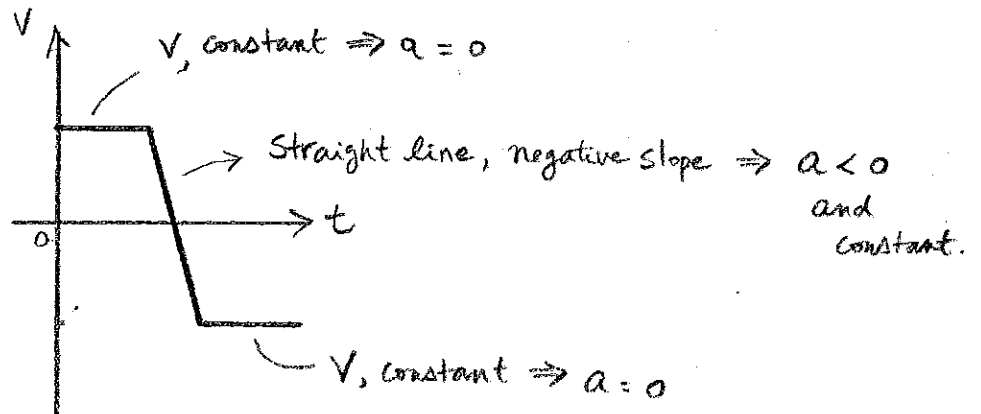 V
V, constant ⇒ a = 0
Straight line, negative slope ⇒ a < 0
and
constant.
t
0
V, constant ⇒ a = 0